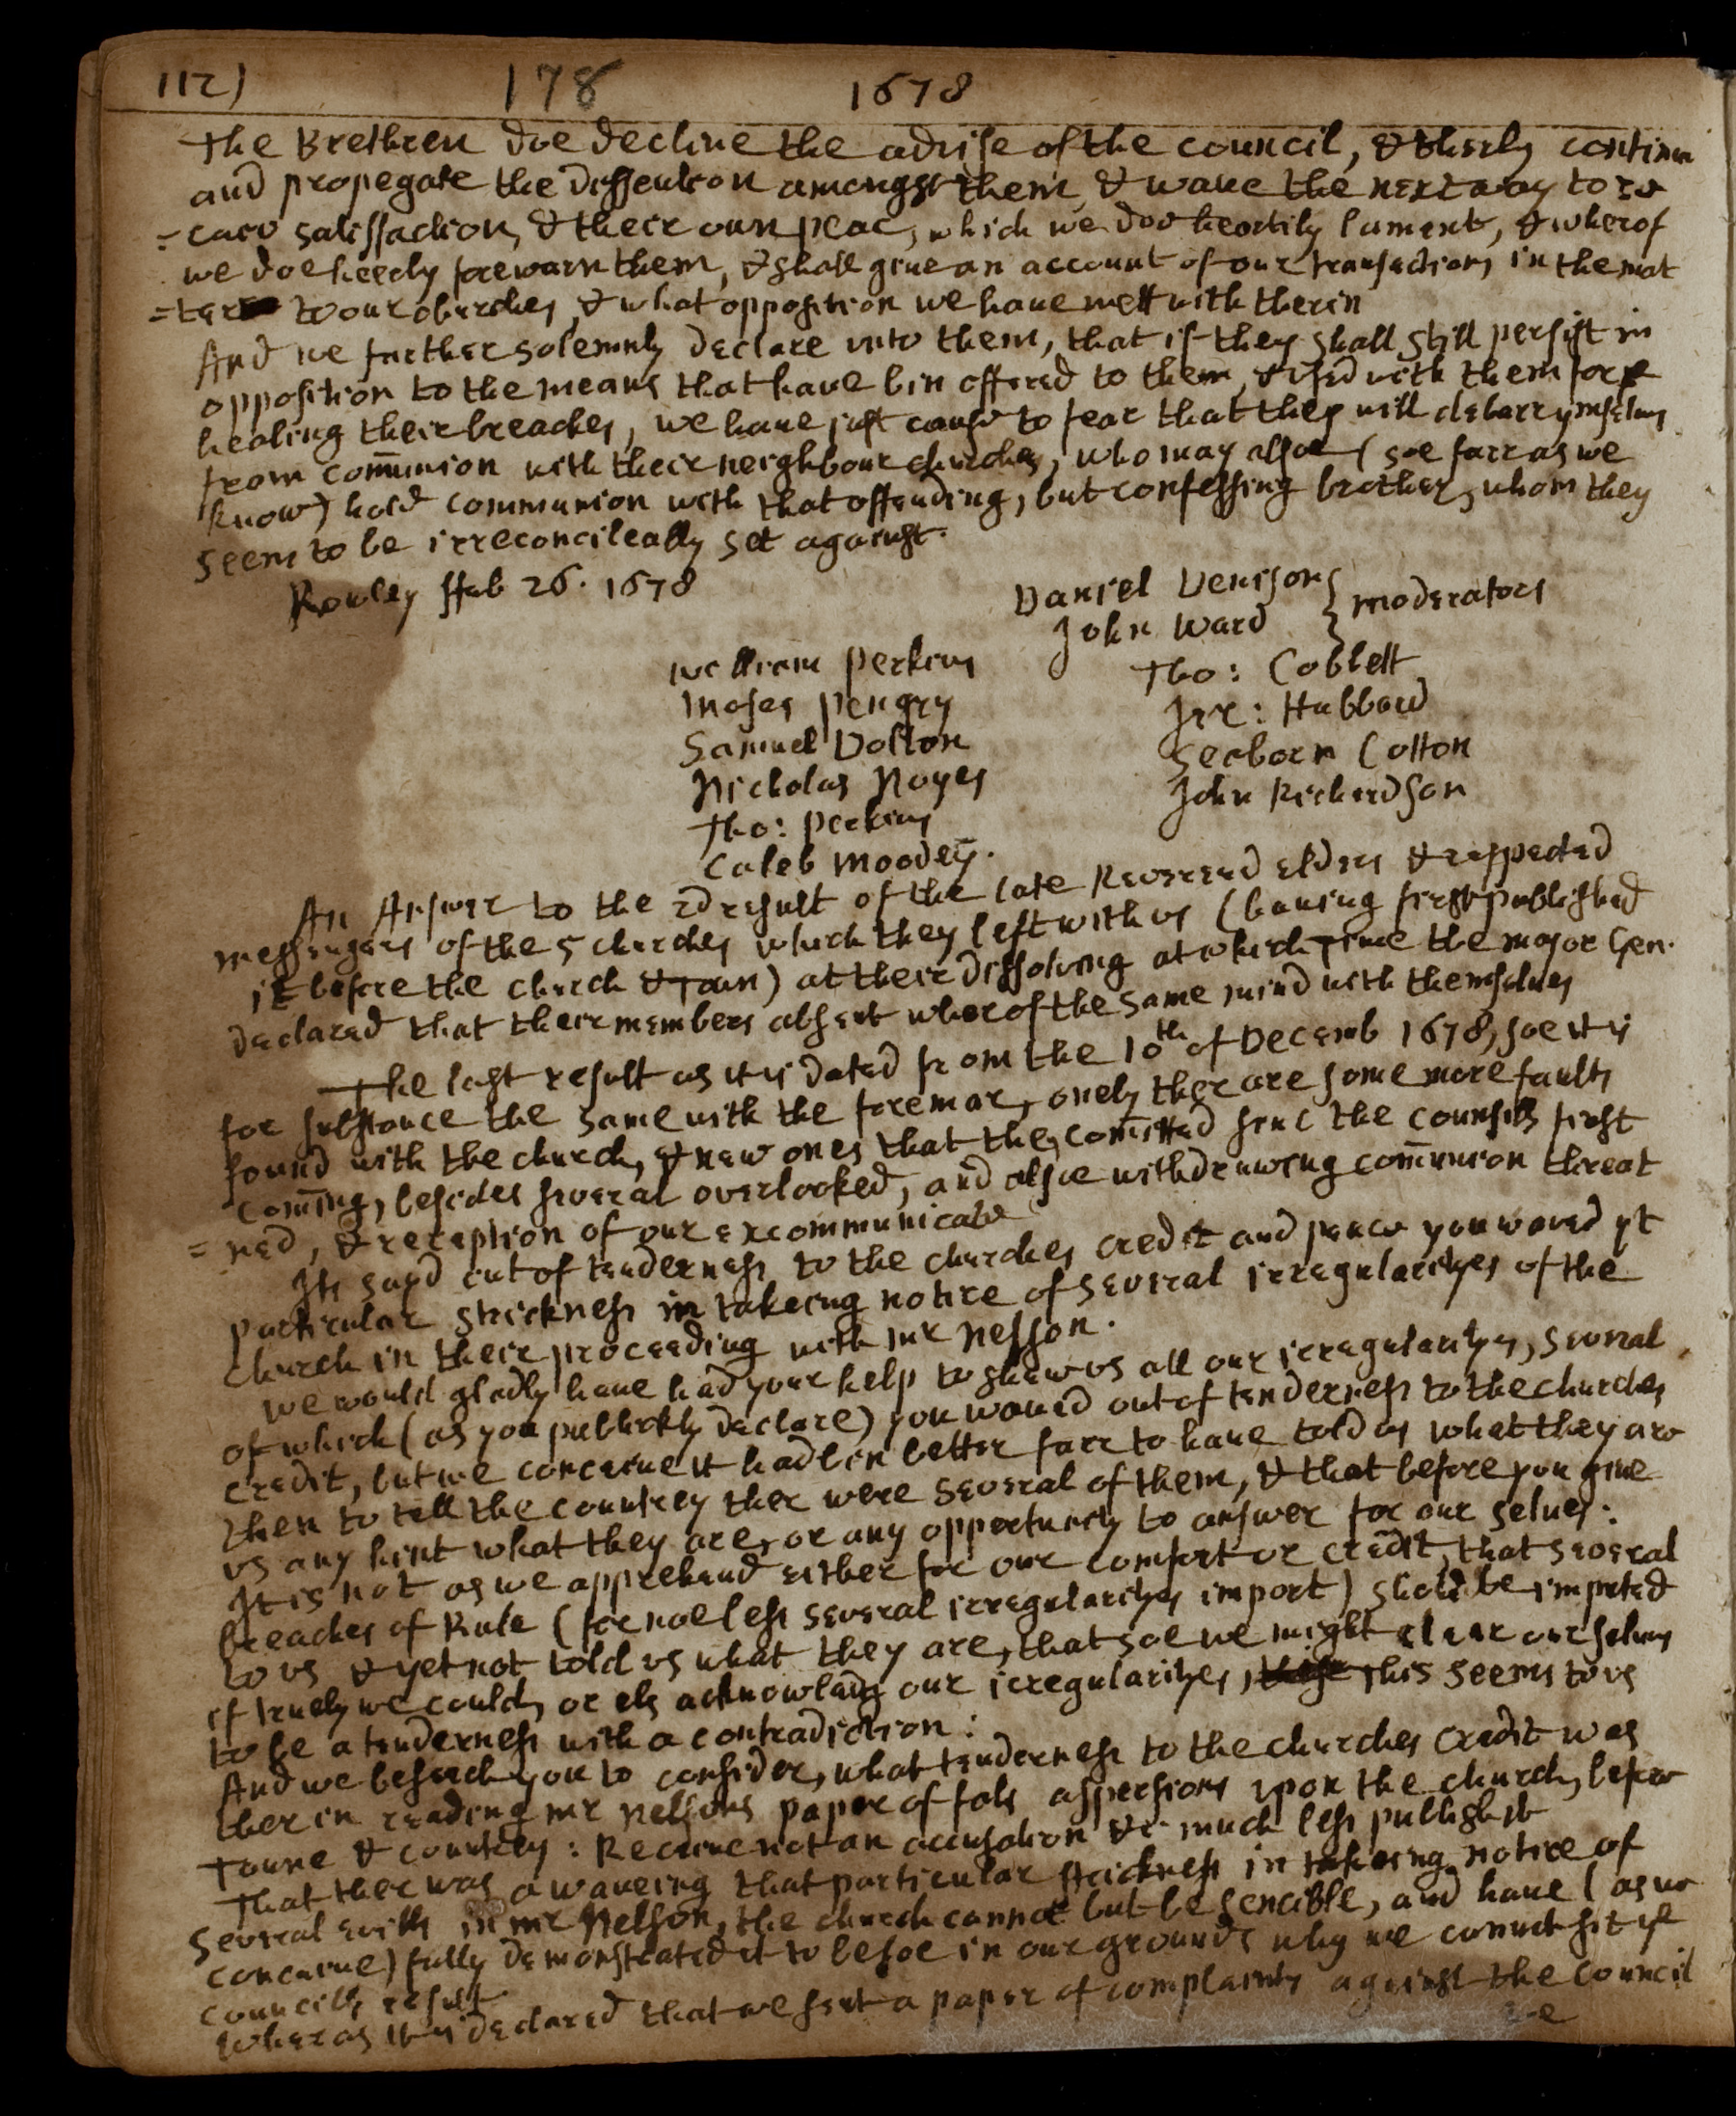 112) 178 1678
The Brethren doe decline the advise of the council, & therby continu
and propegate the dissention amongst them, & wave the next way to re
=cave satisffaction, & their own peac, which we doe heartily lament, & wherof
we doe heerby forewarn them, & shall give an account of our transactions in the mat
=ter to our churches, & what opposition we have mett with therin
And we further solemnly declare unto them, that if they shall still persist in
opposition to the means that have bin offered to them, & used with them for ye
healing their breaches, we have just cause to fear that they will debarr ymselves
from com̄union with their neighbour churches, who may alsoe (soe farr as we
know) hold communion with that offending, but confessing brother, whom they
seem to be irreconcileably set against.
Rowley ffeb 26. 1678
Daniel Denison } moderators
John Ward
William Perkins Tho: Cobbett
Moses Pengry Jer: Hubbard
Samuel Dolton Seaborn Cotton
Nicholas Noyes John Richardson
Tho: Perkins
Caleb Moodey.
An Answer to the 2d result of the late Reverend elders & respected
messengers of the 5 churches which they left with us (having first published
it before the church & Town) at their dissolving at which time the major Gen.
declared that their members absent wher of the same mind with themselves
The last result as it is dated from the 10th of Decemb 1678, soe it is
for substance the same with the foremar, onely ther are some more faults
found with the church, & new ones that they com̄itted sinc the counsills first
com̄ing, besides several overlooked, and alsoe withdrawing com̄union threat
=ned, & reception of our excommunicate
Its sayd out of tenderness to the churches credit and peace you waved yt
particular strickness in takeing notice of several irregularityes of the
church in their proceeding with mr Nelson.
We would gladly have had your help to shew us all our irregularityes, several
of which (as you publickly declare) you waved out of tenderness to the churches
credit, but we conceive it had bin better farr to have told us what they are
then to tell the countrey ther were several of them, & that before you give
us any hint what they are, or any oppertunity to answer for our selves.
It is not as we apprehend either for our comfort or credit, that several
breaches of Rule (for noe less several irregularityes import) should be imputed
to us & yet not told us what they are, that soe we might clear our selves
if truely we could, or els acknowledg our irregularityes, this seems to us
to be a tenderness with a contradiction:
And we beseech you to consider, what tenderness to the churches credit was
ther in reading mr Nelsons paper of fals aspersions upon the church, before
Towne & countrey: Receive not an accusation &c much less publish it
That ther was a waveing that particular strickness in takeing notice of
several evills in mr Nelson, the church cannot but be sencible, and have (as we
conceive) fully demonstrated it to be soe in our grounds why we connot sit ye
councills result.
Wheras it is declared that we sent a paper of complaints against the council